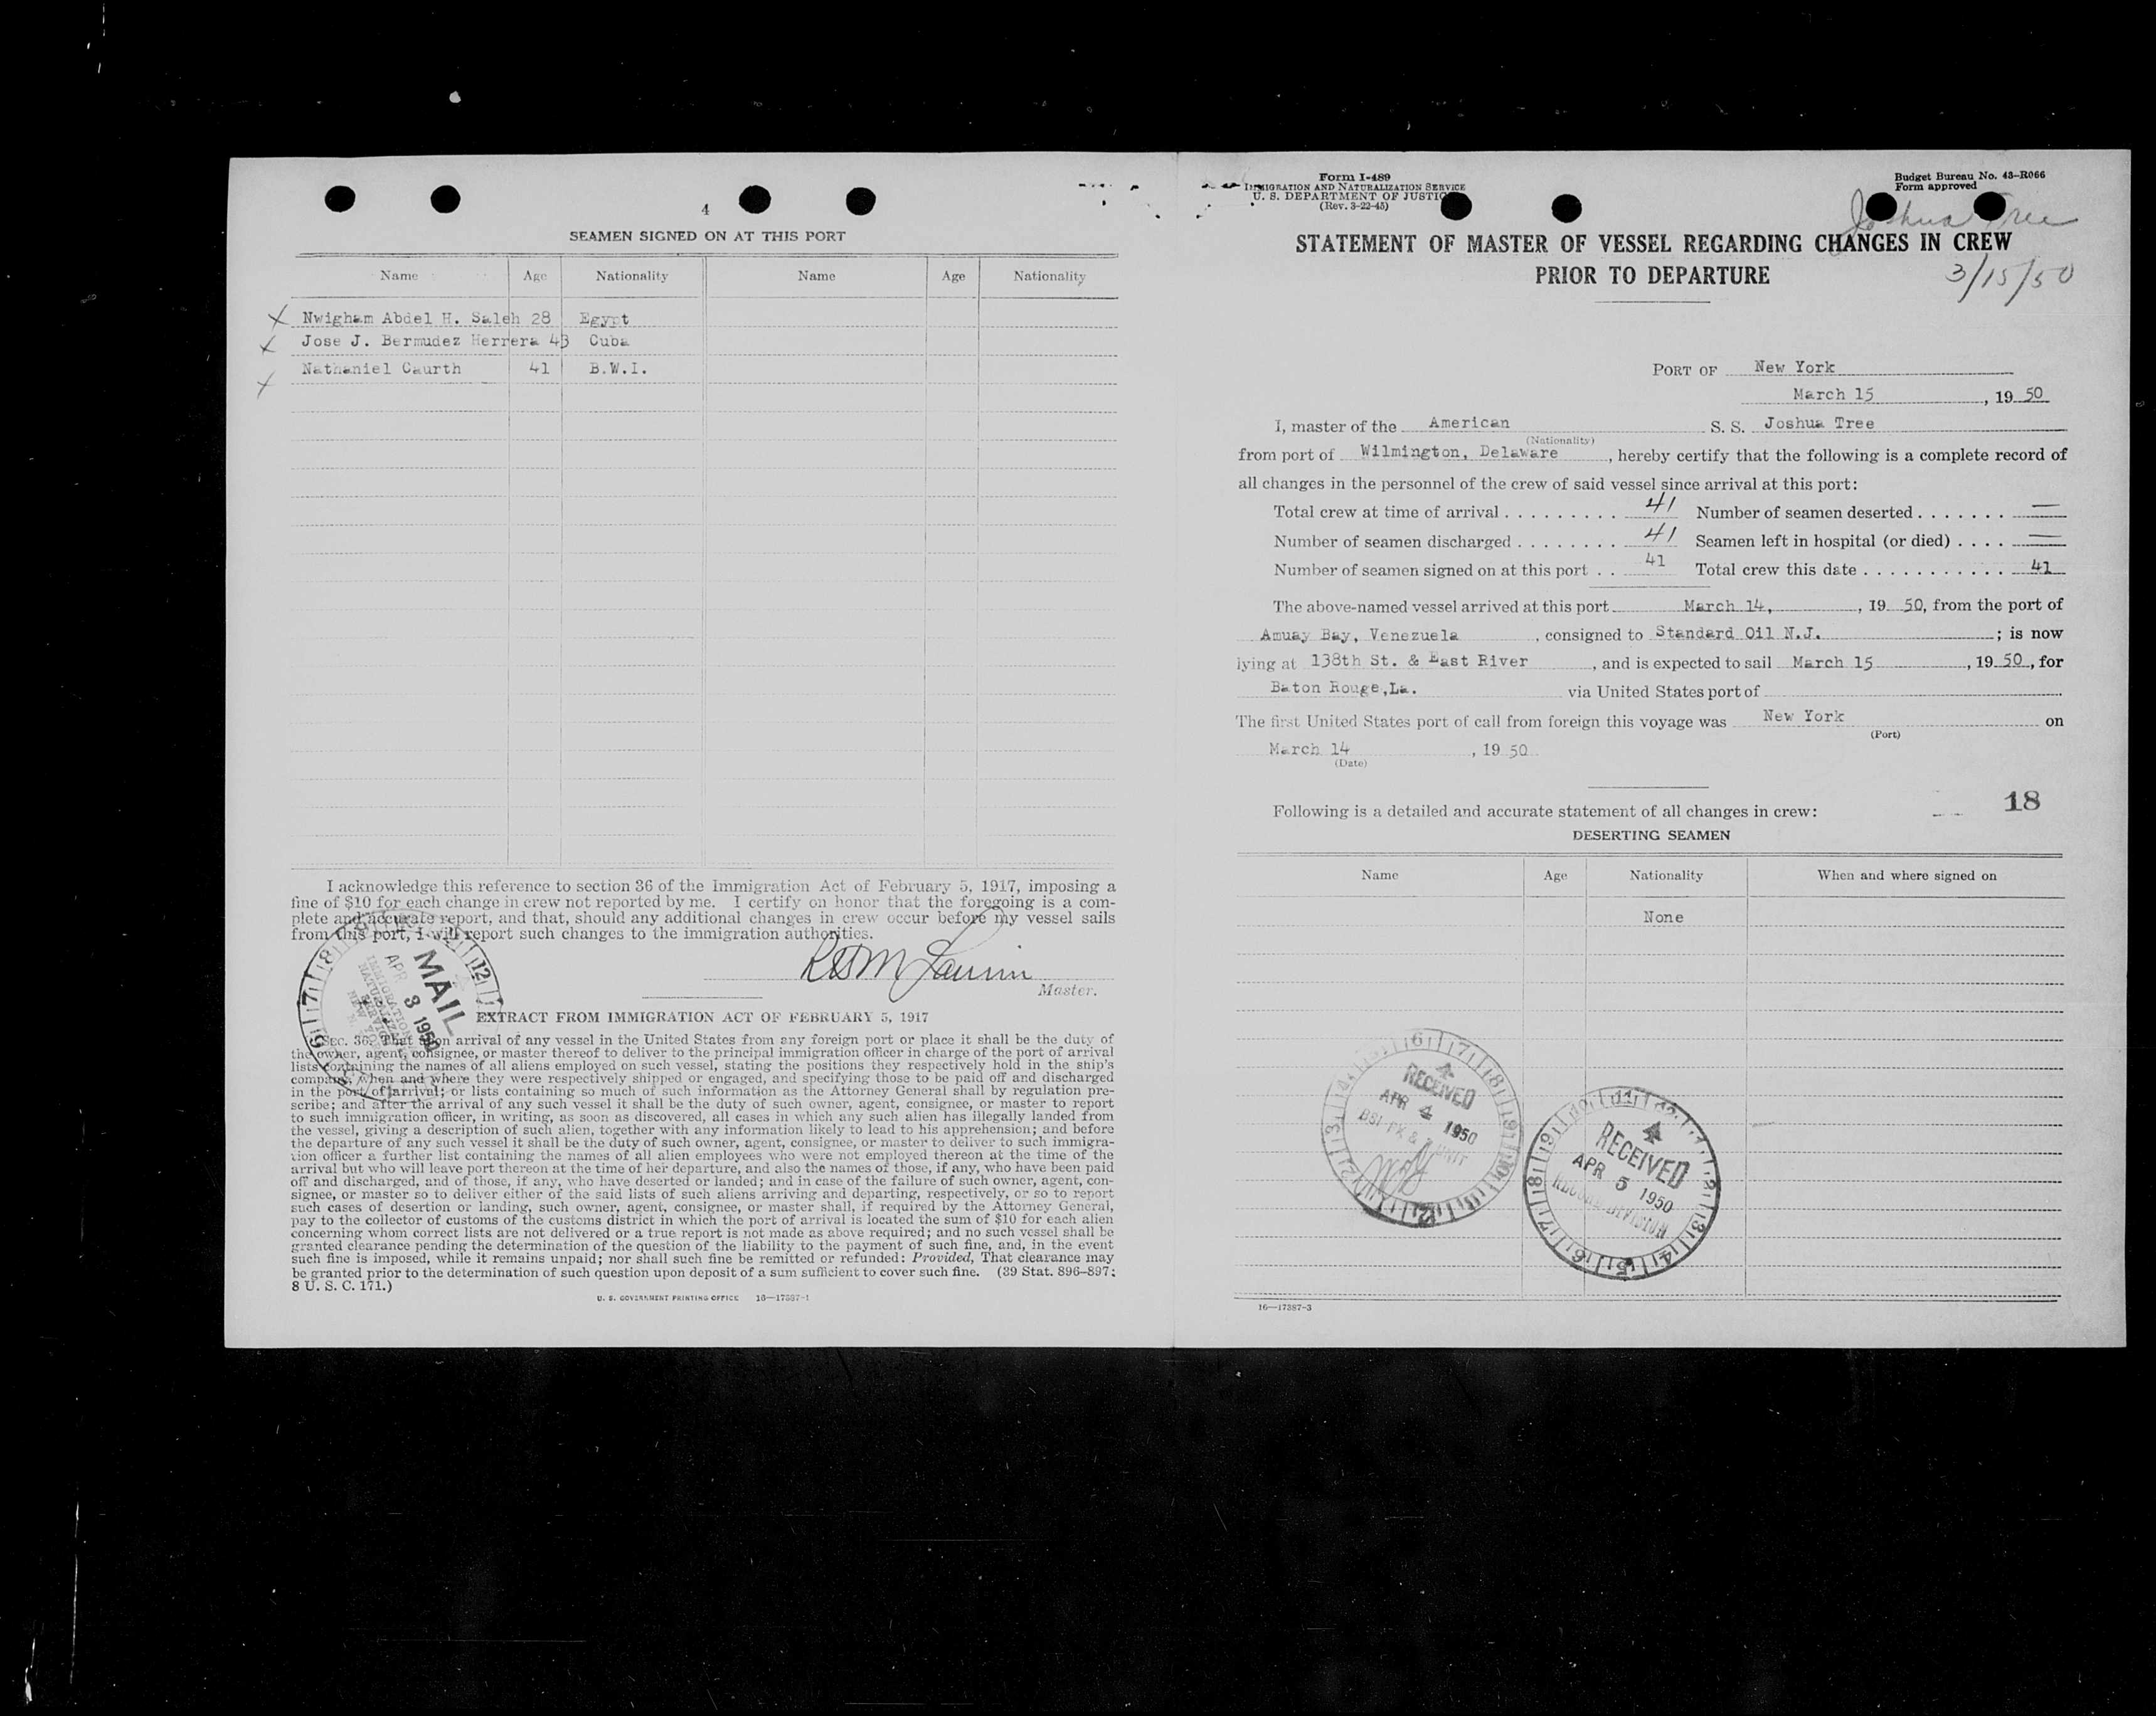 4
SEAMEN SIGNED ON AT THIS PORT
Name Age Nationality Name Age Nationality
X Nwigham Abdel H. Saleh 28 Egypt
X Jose J. Bermudez Herrera 43 Cuba
X Nathaniel Caurth 41 B.W.I.
I acknowledge this reference to section 36 of the Immigration Act of February 5, 1917, imposing a
fine of $10 for each change in crew not reported by me. I certify on honor that the foregoing is a com-
plete and accurate report, and that, should any additional changes in crew occur before my vessel sails
from this port, I will report such changes to the immigration authorities.
Master.
MAIL
APR 3 1950
IMMIGRATION
EXTRACT FROM IMMIGRATION ACT OF FEBRUARY 5, 1917
SEC. 36. That upon arrival of any vessel in the United States from any foreign port or place it shall be the duty of
the owner, agent, consignee, or master thereof to deliver to the principal immigration officer in charge of the port of arrival
lists containing the names of all aliens employed on such vessel, stating the positions they respectively hold in the ship's
company, when and where they were respectively shipped or engaged, and specifying those to be paid off and discharged
in the port of arrival; or lists containing so much of such information as the Attorney General shall by regulation pre-
scribe; and after the arrival of any such vessel it shall be the duty of such owner, agent, consignee, or master to report
to such immigration officer, in writing, as soon as discovered, all cases in which any such alien has illegally landed from
the vessel, giving a description of such alien, together with any information likely to lead to his apprehension; and before
the departure of any such vessel it shall be the duty of such owner, agent, consignee, or master to deliver to such immigra-
tion officer a further list containing the names of all alien employees who were not employed thereon at the time of the
arrival but who will leave port thereon at the time of her departure, and also the names of those, if any, who have been paid
off and discharged, and of those, if any, who have deserted or landed; and in case of the failure of such owner, agent, con-
signee, or master so to deliver either of the said lists of such aliens arriving and departing, respectively, or so to report
such cases of desertion or landing, such owner, agent, consignee, or master shall, if required by the Attorney General,
pay to the collector of customs of the customs district in which the port of arrival is located the sum of $10 for each alien
concerning whom correct lists are not delivered or a true report is not made as above required; and no such vessel shall be
granted clearance pending the determination of the question of the liability to the payment of such fine, and, in the event
such fine is imposed, while it remains unpaid; nor shall such fine be remitted or refunded: Provided, That clearance may
be granted prior to the determination of such question upon deposit of a sum sufficient to cover such fine. (39 Stat. 896-897;
8 U. S. C. 171.)
U. S. GOVERNMENT PRINTING OFFICE 16—17387-1
Form I-489
IMMIGRATION AND NATURALIZATION SERVICE
U. S. DEPARTMENT OF JUSTICE
(Rev. 3-22-45)
Budget Bureau No. 43-R066
Form approved
Joshua Tree
STATEMENT OF MASTER OF VESSEL REGARDING CHANGES IN CREW
PRIOR TO DEPARTURE
3/15/50
PORT OF New York
March 15, 19 50
I, master of the American S. S. Joshua Tree
(Nationality)
from port of Wilmington, Delaware, hereby certify that the following is a complete record of
all changes in the personnel of the crew of said vessel since arrival at this port:
Total crew at time of arrival . . . . . . . . . 41 Number of seamen deserted . . . . . . . —
Number of seamen discharged . . . . . . . . 41 Seamen left in hospital (or died) . . . . —
Number of seamen signed on at this port . . 41 Total crew this date . . . . . . . . . . . . 41
The above-named vessel arrived at this port March 14, , 19 50, from the port of
Amuay Bay, Venezuela , consigned to Standard Oil N.J. ; is now
lying at 138th St. & East River , and is expected to sail March 15 , 19 50 , for
Baton Rouge,La. via United States port of
The first United States port of call from foreign this voyage was New York on
(Port)
March 14 , 19 50
(Date)
Following is a detailed and accurate statement of all changes in crew:
18
DESERTING SEAMEN
Name Age Nationality When and where signed on
None
RECEIVED
APR 4 1950
UNIT
RECEIVED
APR 5 1950
RECORD DIVISION
16—17387-3